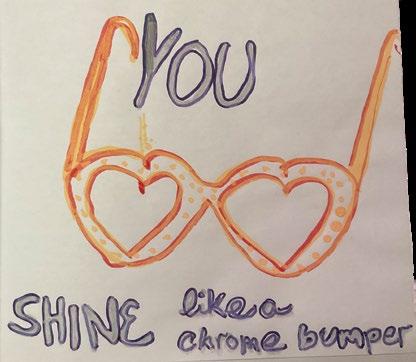 YOU
SHINE like a
chrome bumper